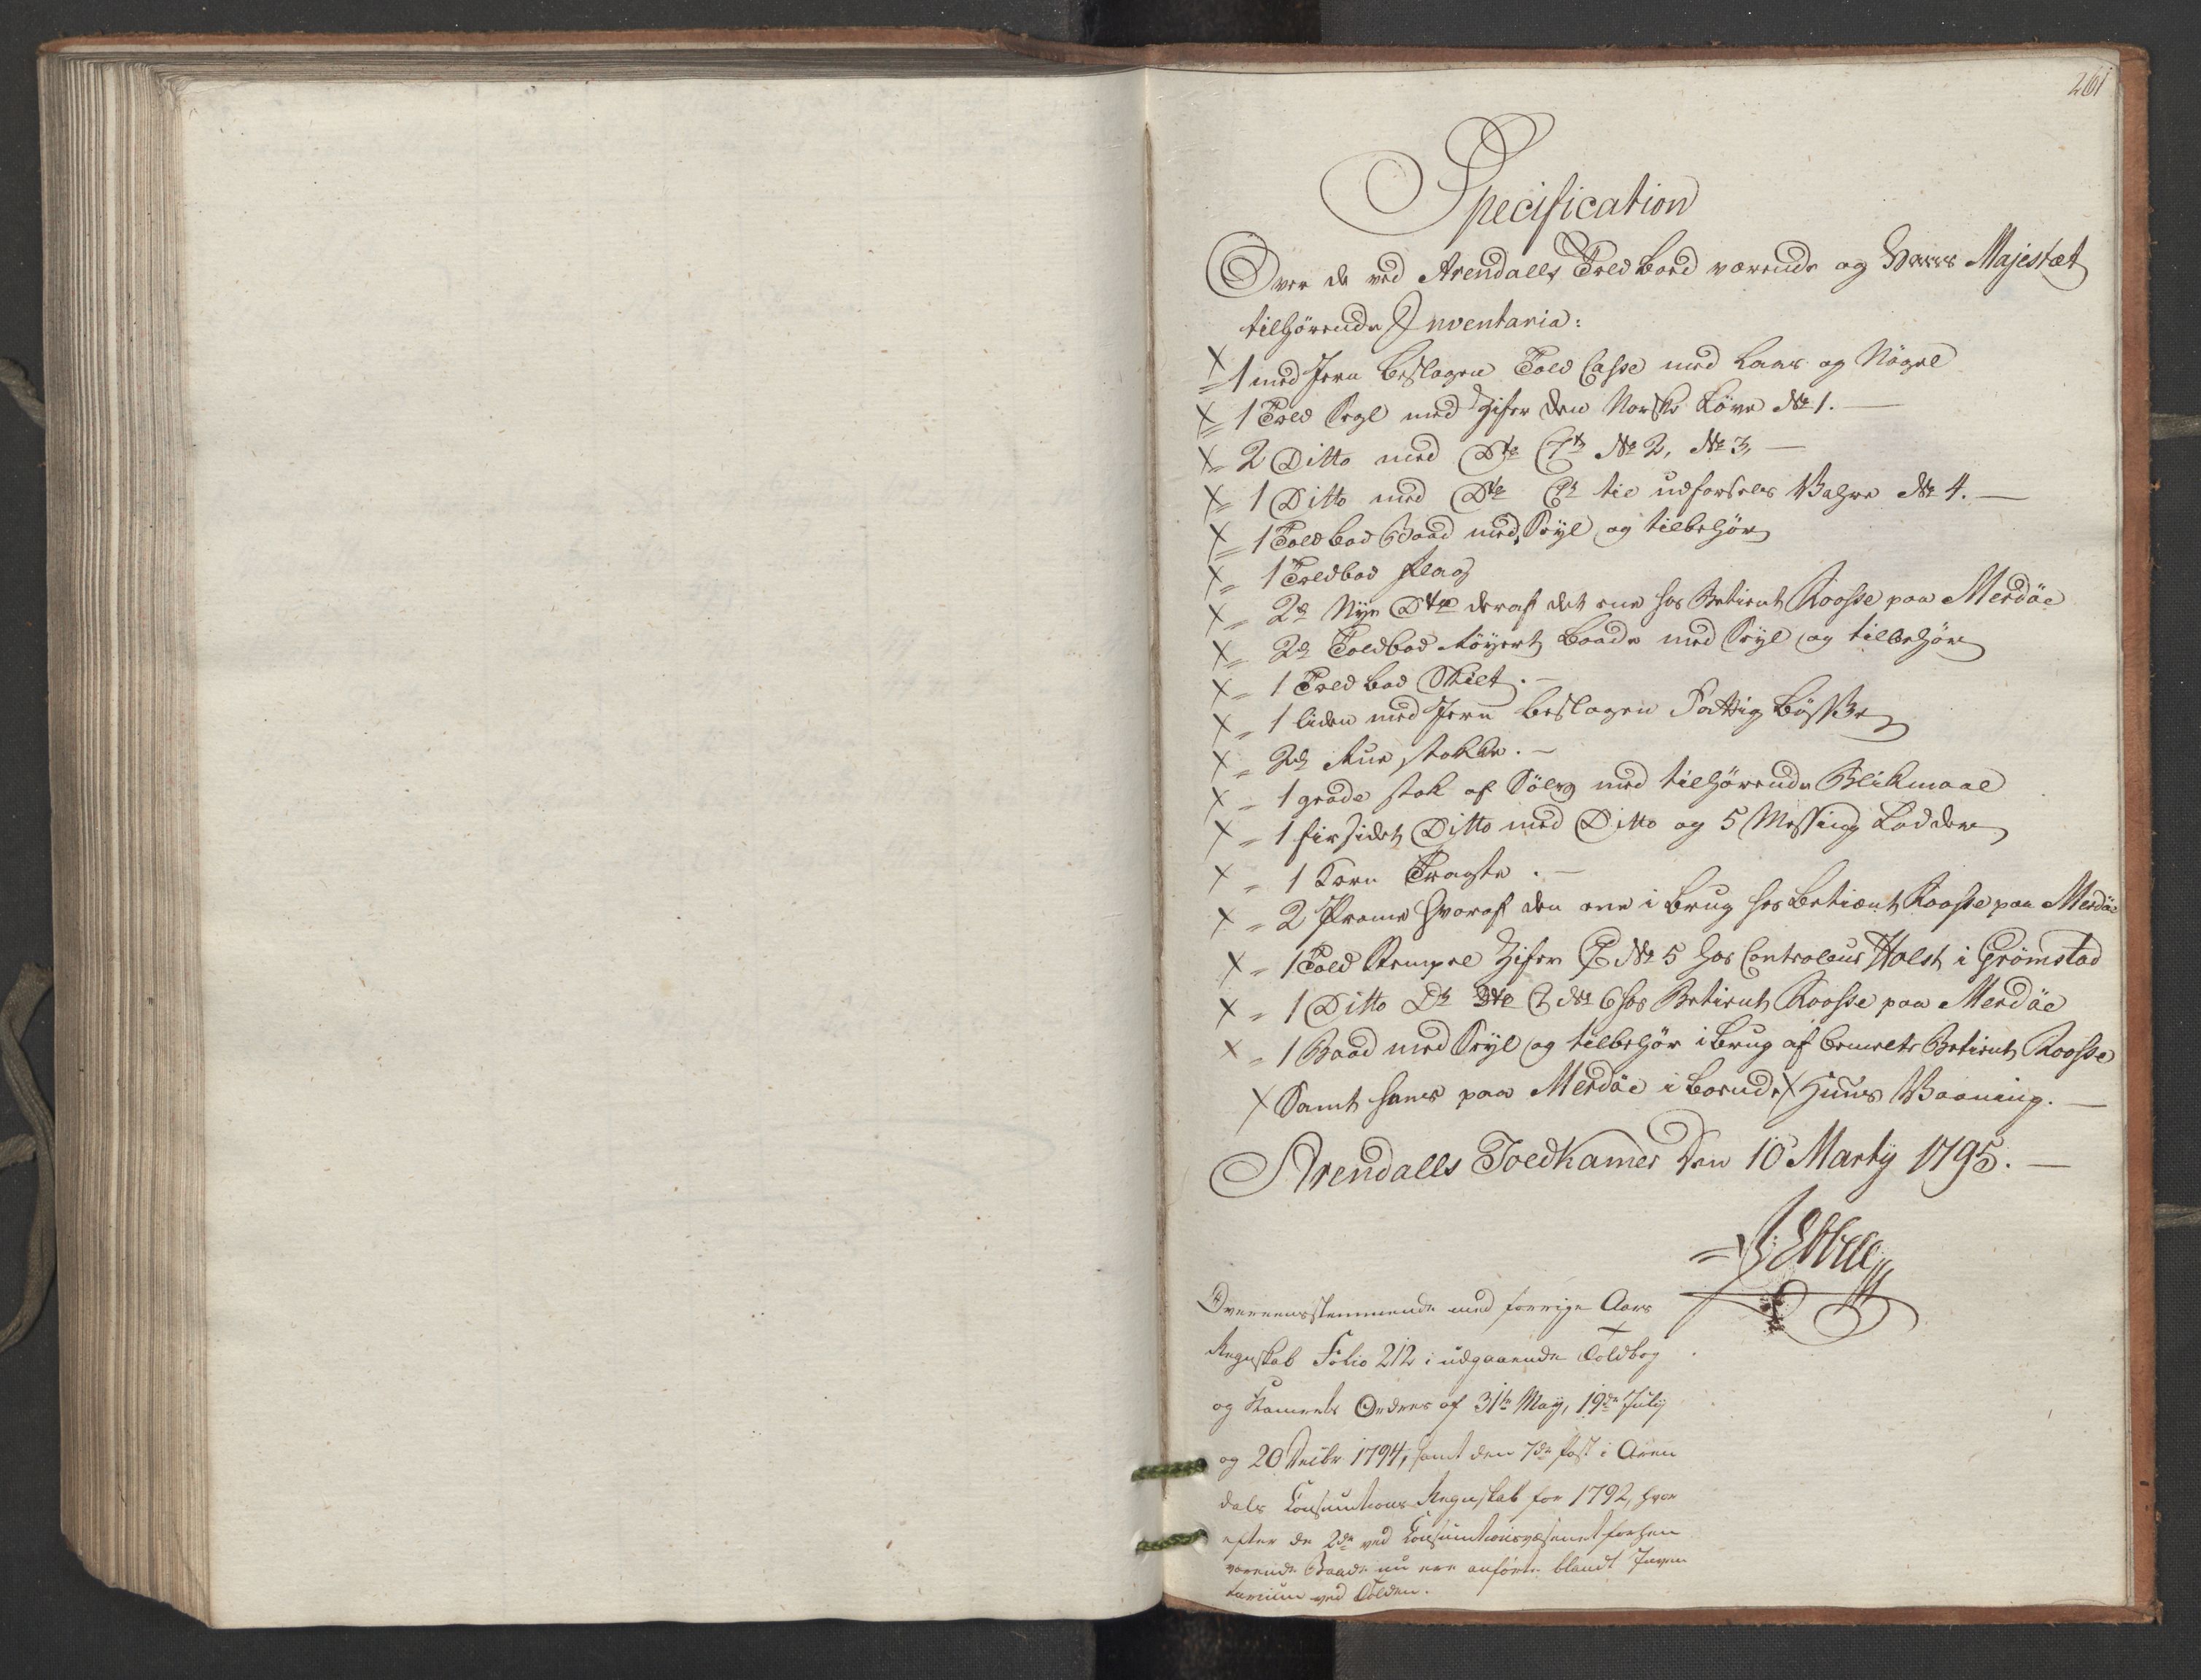 261
Specification
Over de ved Arendalls Told Boed værende og Hans Majestæt
tilhørende Inventaria:
X = 1 med Jern beslagen Told Casse med Laas og Nögel
X = 1 Told Segl med Zifer den Norske Löve No 1. —
X = 2 Ditto med Dto No 2, No 3, —
X = 1 Ditto med Dto til udførsels Vahre No 4. —
X = 1 Toldbod Baad med Seyl og tilbehör
X = 1 Toldbod flag
X = 2de Nye Dto deraf det ene hos Betient Roosse paa Merdöe
X = 2de Toldbod Röyert Baade med Seyl og tilbehör
X = 1 Told bod Skilt. —
X = 1 liden med Jern beslagen Fattig Bösse
X = 2de Rue stokke. —
X = 1 grade stok af Sölv med tilhörende Blikmaal
X = 1 firsidet Ditto med Ditto og 5 Messing Lodder
X = 1 Korn Tragte. —
X = 2 Prame hvoraf den ene i Brug hos Betient Roosse paa Merdöe
X = 1 Told Stempel Zifer No 5 hos Controleur Holst i Grömstad
X = 1 Ditto Do Dto No 6 hos Betient Roosse paa Merdöe
X = 1 Baad med Seyl og tilbehör i Brug af bemelte Betient Roosse
X Samt hans paa Merdöe i boende X Huus Vaaning. —
Arendalls Toldkamer Den 10 Martij 1795. —
Ebbell
Overeensstemmende med forrige Aars
Regnskab Folio 212 i udgaaende Toldbog
og Kamerets Ordres af 31te May, 19de Julij
og 20 Decbr 1794, samt den 7de Post i Aren
dals Consumtions Regnskab for 1792, hvor
efter de 2de ved Consumtionsvæsenet forhen
værende Baade nu ere anförte blandt Inven
tarium ved Tolden.